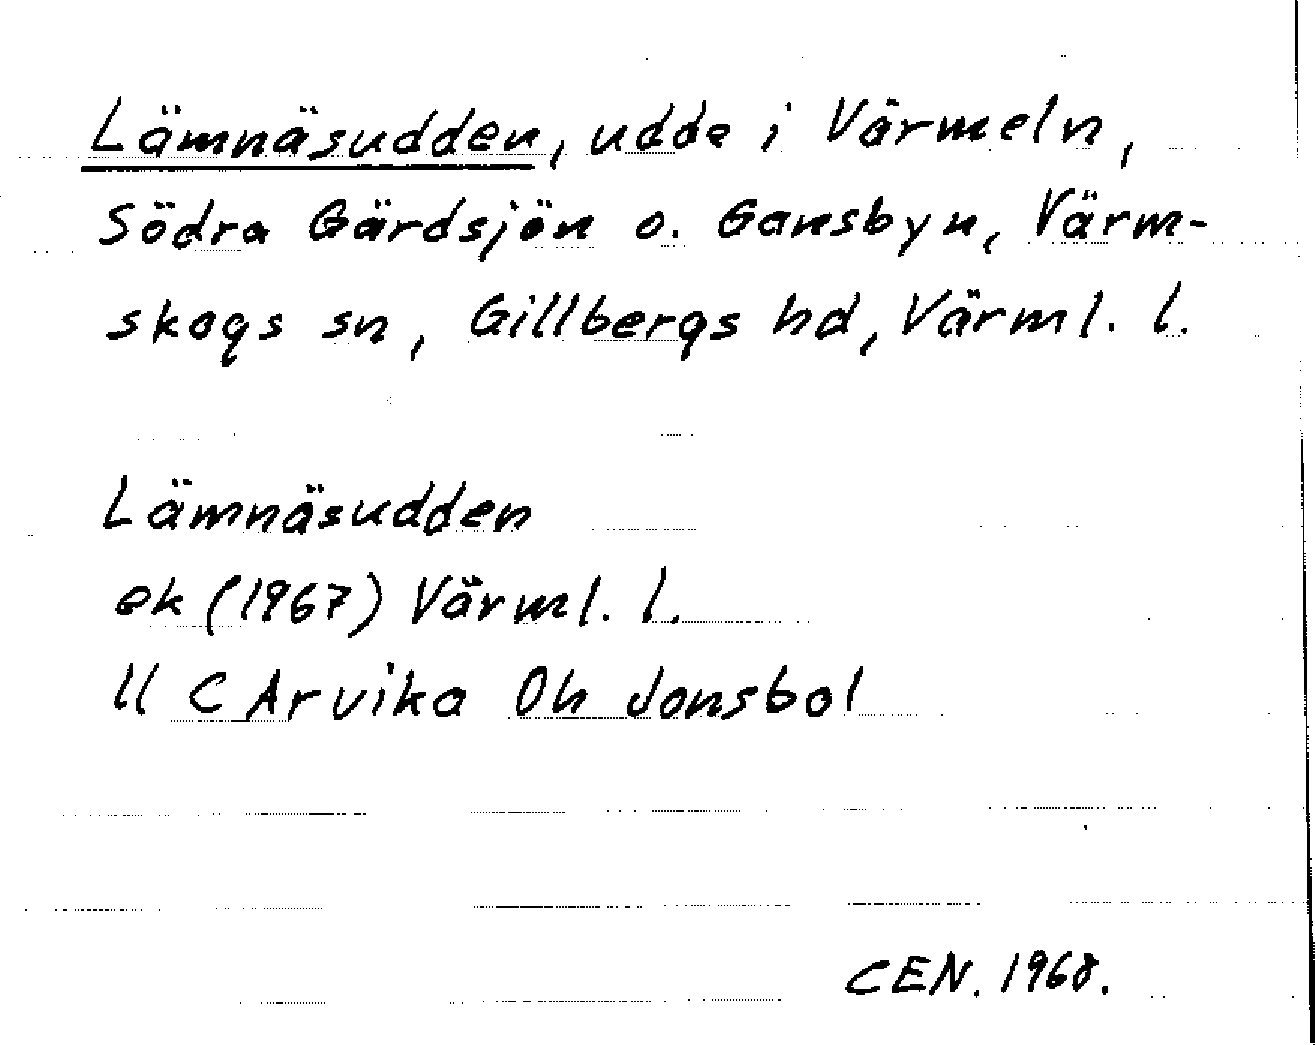 Lämnäsudden, udde i Värmeln,
Södra Gärdsjön o. Gansbyn, Värm-
skogs sn, Gillbergs hd, Värml. l.
Lämnäsudden
ek (1967) Värml. l.
11 C Arvika 0h Jonsbol
CEN. 1968.